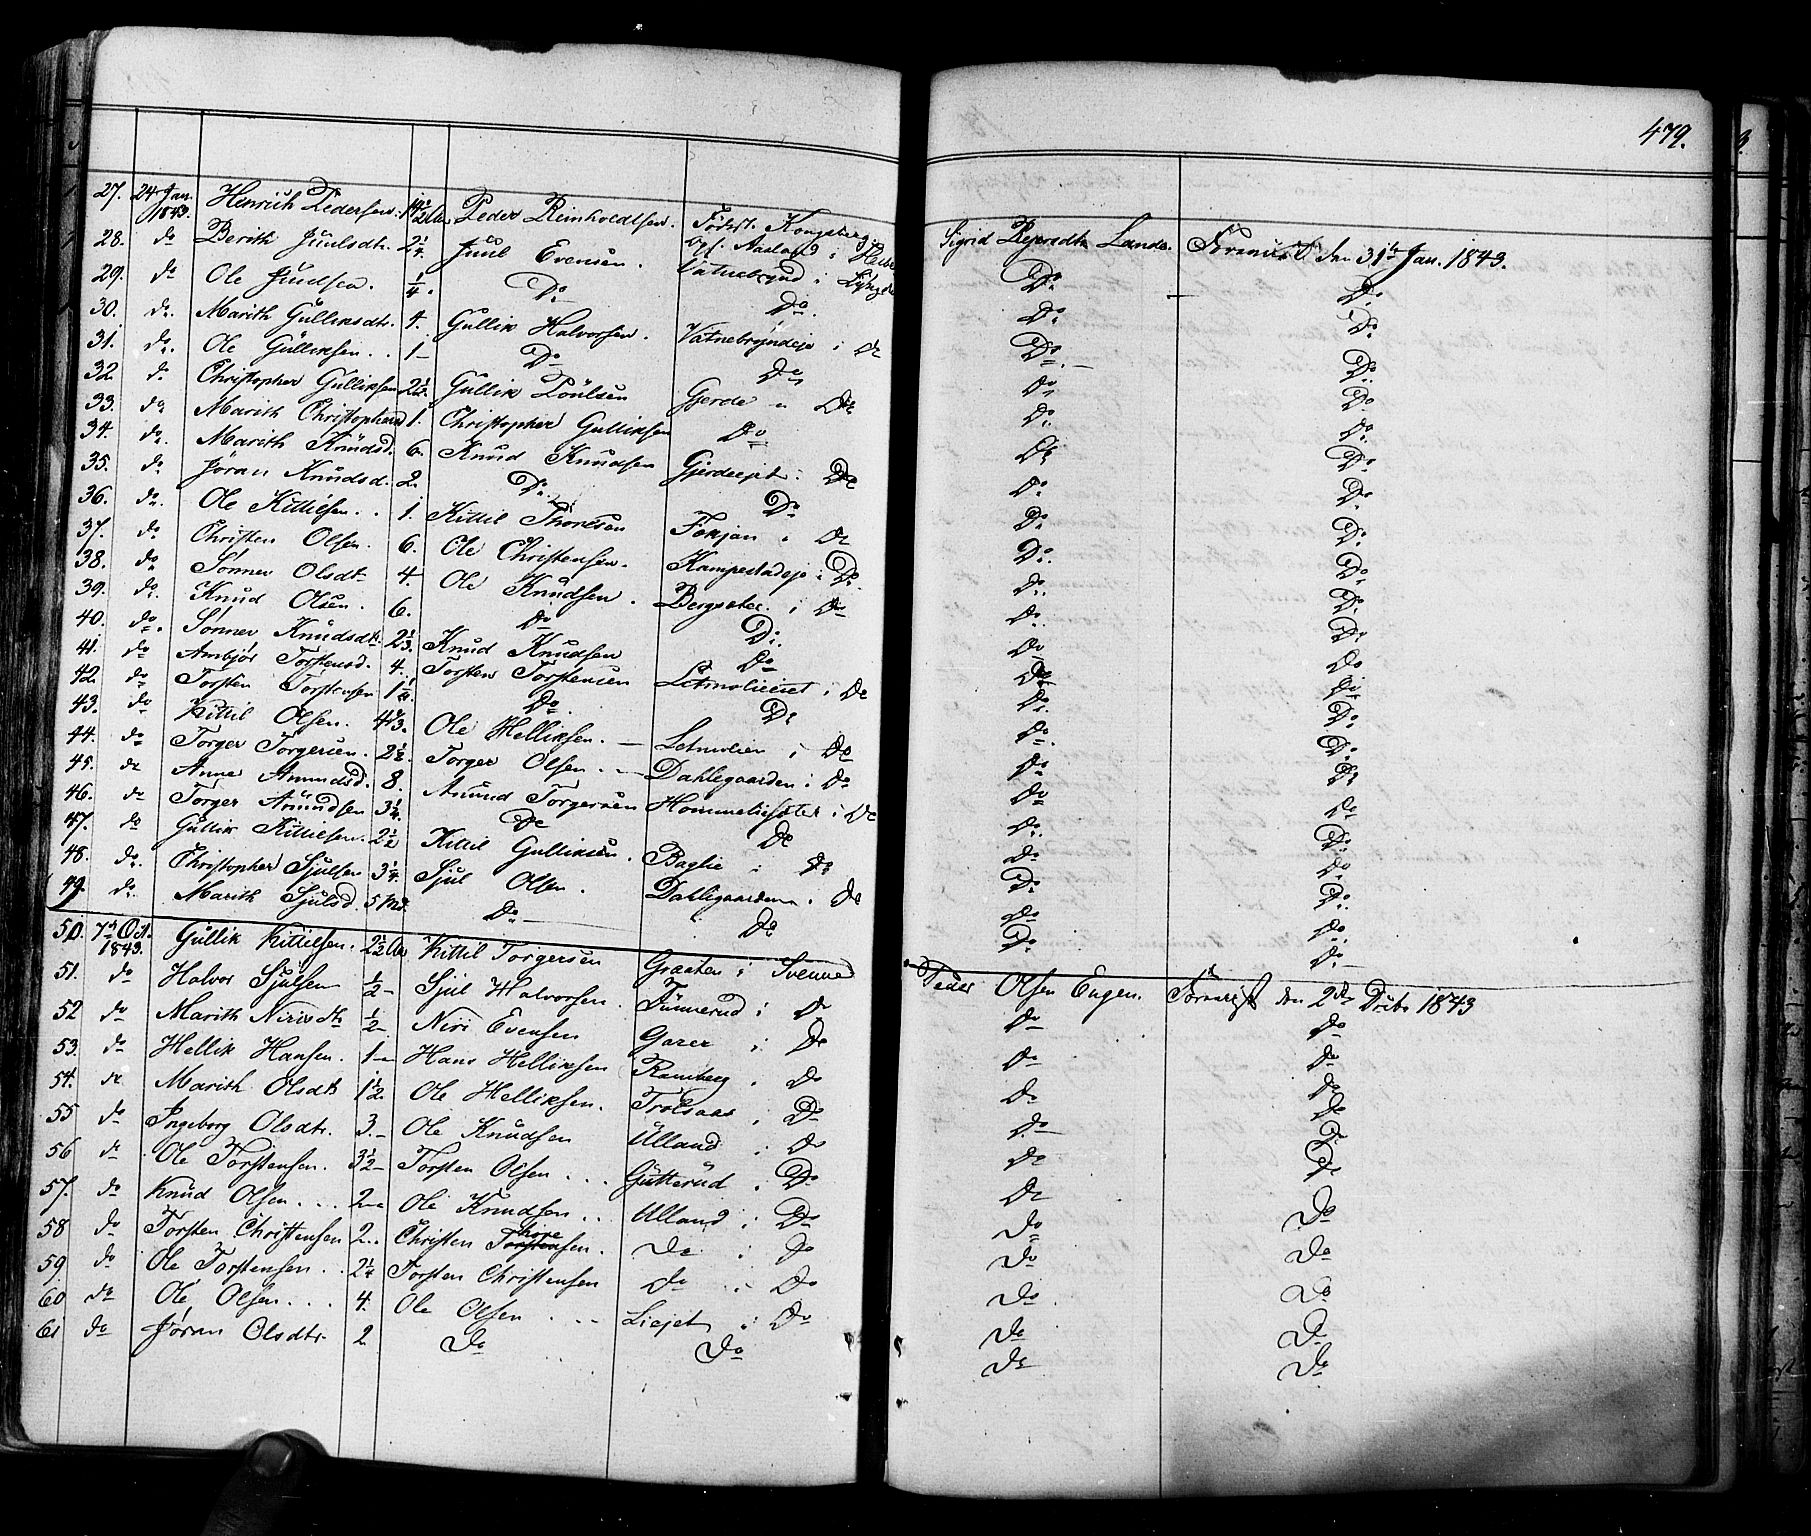 479.
27. 24 Jan. 1843. Henrich Pedersen. Peder Reinholdtsen. Født Kongsberg Sigrid Lande. den 31te Jan. 1843.
28. do Berith Juulsdt. 2 1/4. Juul Evensen. Vatnebrynd i Do Do
29. do Ole Juulsen. 1/4. Do Do. Do Do
30. do. Marith Gulliksdtr. 4. Gullik Halvorsen. Vatnebryndeje i Do Do Do
31. do. Ole Gulliksen.. 1 Do Do Do Do
32 do Christopher Gulliksen 2 1/2. Gullik Poulsen Gjerde i Do Do Do
33. do. Marith Christophersd 1. Christopher Gulliksen Do Do Do
34. do. Marith Knudsd. 6. Knud Knudsen Gjerdeejet i Do Do Do
35. do Jøran Knudsd. 2. Do. Do Do Do
36. do. Ole Kittilsen.. 1. Kittil Thoresen Fekjan i Do Do Do
37. do Christen Olsen. 6. Ole Christensen. Kampestadeje i Do Do Do
38. do. Sønner Olsdt 4. Ole Knudsen. Bergsater i Do Do Do
39. do. Knud Olsen. 6. Do Do. Do Do
40. do. Sønner Knudsdt. 2 1/3. Knud Knudsen Do Do Do
41. do Ambjør Torstensd. 4. Torsten Torstensen i Do Do Do
42. do Torsten Torstensen 1 1/4 Do. Do Do Do
43. do Kittil Olsen. Ole Helliksen. Letmolien i Do Do Do
44. do Torger Torgersen. 2 1/2. Torger Olsen. Dahlegaarden i Do Do Do
45. do Anne Amundsd. 8. Amund Torgersen i Do Do Do
46. do Torger Amundsen 3 1/4. Do Do Do Do
47. do Gullik Kittilsen. 2 1/2 Kittil Gulliksen. Baglie i Do Do Do
48. do. Christopher Sjulsen 3 1/4. Sjul Olsen. Dahlegaarden i Do Do Do
49. do. Marith Sjulsd. 5 Md. Do Do Do Do
50. 7de Oct. 1843. Gullik Kittilsen. 2 1/2 Aar Kittil Torgersen Graaten i Svenne Peder Olsen Engen. den 2den Dcbr 1843
51. do Halvor Sjulsen 1/2 Sjul Halvorsen. Funnerud i Do Do Do
52 do Marith Nirisdtr 1/2 Niri Evensen Garer i Do Do Do
53. do Hellik Hansen. 1 Hans Helliksen Ramberg. Do Do Do
54. do Marith Olsdtr 1 1/2. Ole Helliksen. Trolsaas i Do Do Do
55 do Ingeborg Olsdtr. 3. Ole Knudsen Ulland i Do Do Do
56 do Ole Torstensen. 3 1/2 Torsten Olsen... Gutterud. Do Do Do
57. do Knud Olsen... 2 Ole Knudsen.. Ulland i Do Do Do
58 do Torsten Christensen 2.. Christen Thoresen. Do i Do Do Do
59 do Ole Torstensen.. 2 1/4 Torsten Christensen do.. Do Do Do
60 do Ole Olsen... 4. Ole Olsen... Liejet i Do Do Do
61 do Jøran Olsdtr. 2 Do Do Do Do